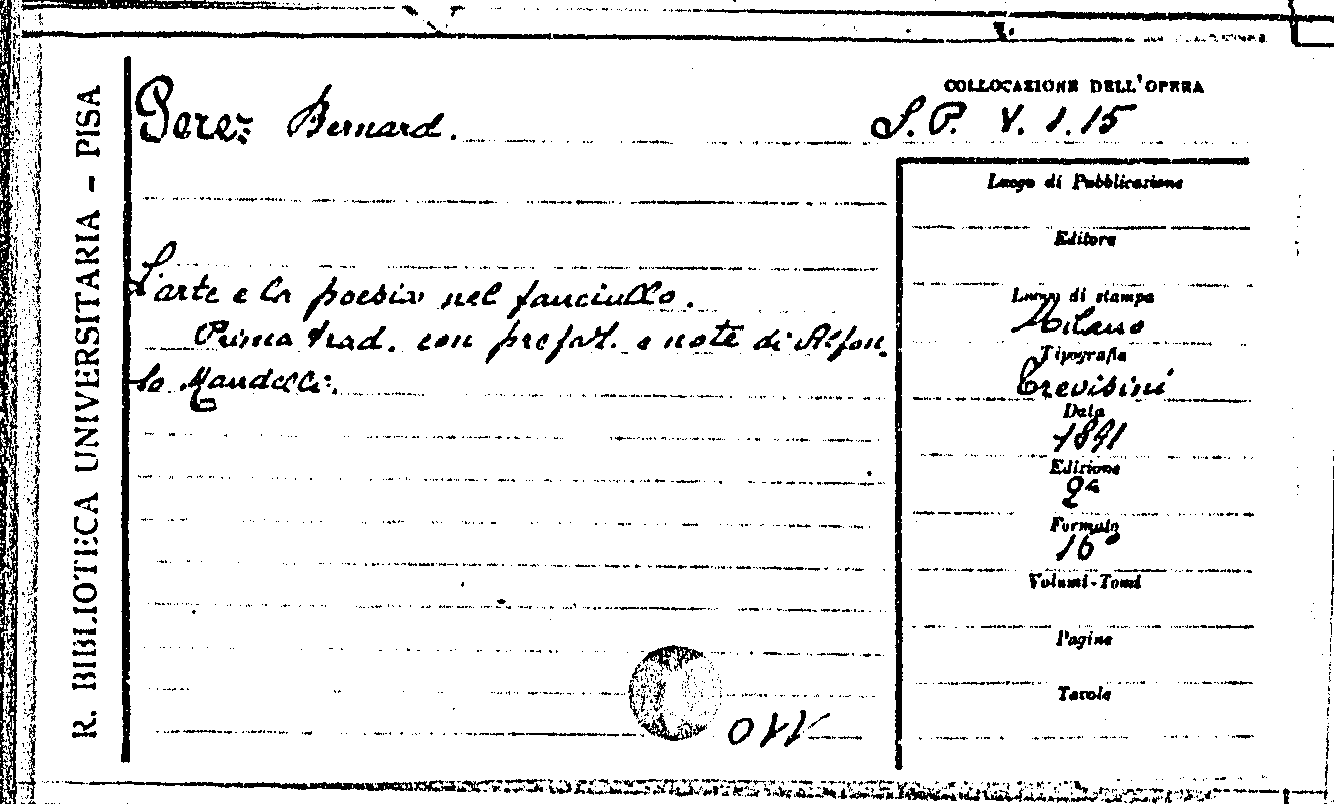 R. BIBLIOTECA UNIVERSITARIA - PISA
Perez Bernard.
COLLOCAZIONE DELL'OPERA
S. P. V. 1. 15
L'arte e la poesia nel fanciullo.
Prima trad. con prefaz. e note di Alfon
so Mandelli.
Luogo di Pubblicazione
Editore
Luogo di stampa
Milano
Tipografia
Trevisini
Data
1891
Edizione
2ª
Formato
16°
Volumi-Tomi
Pagine
Tavole